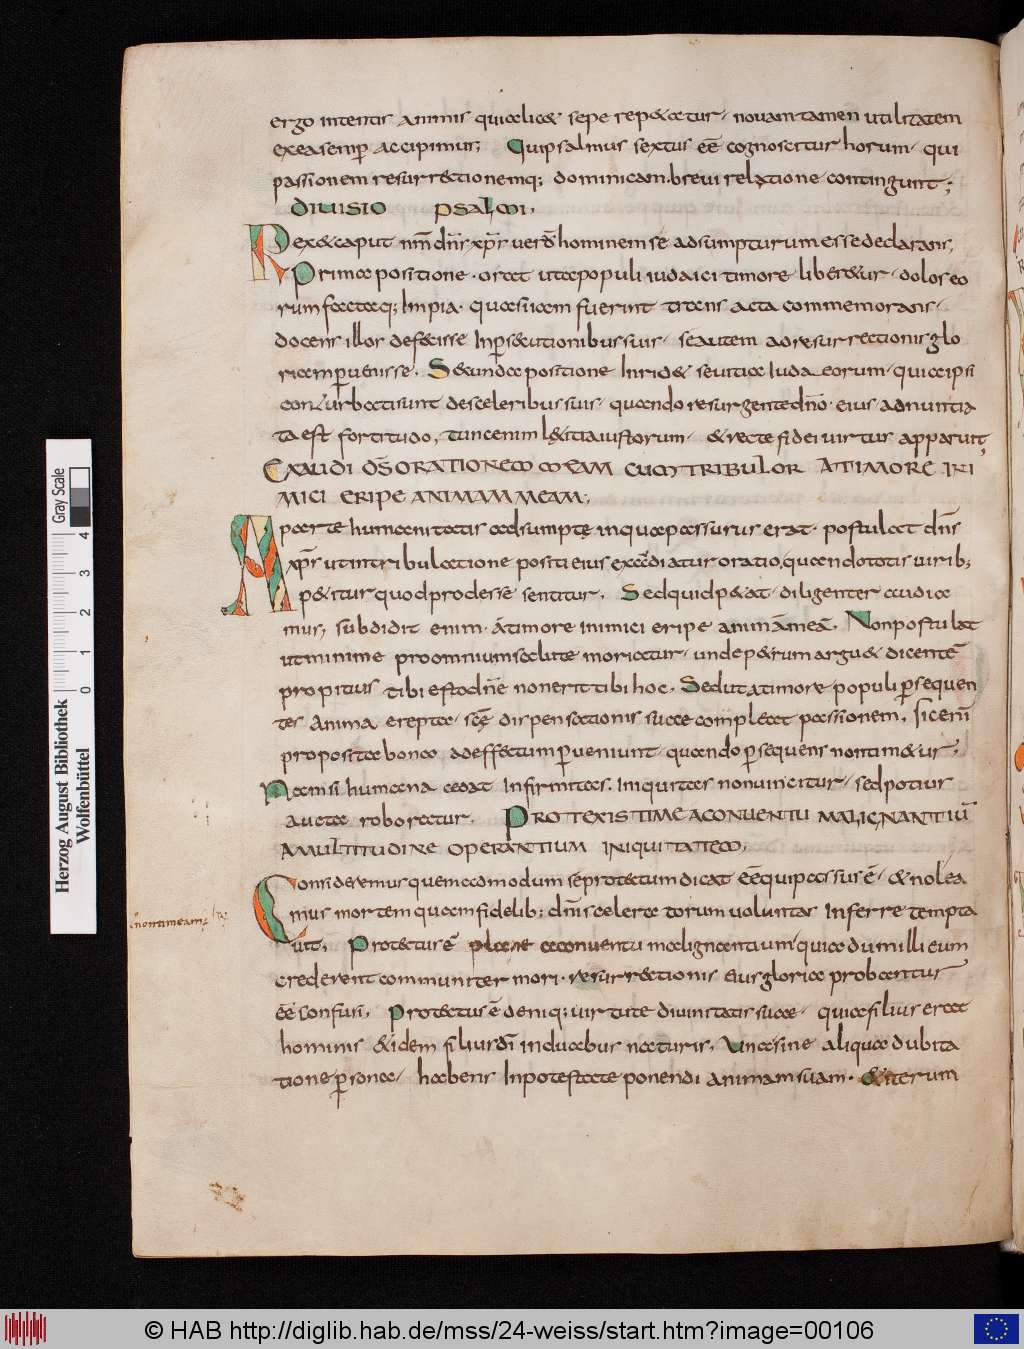 ergo intentis animis quia licet sepe repetatur, novam tamen utilitatem
ex ea semp accipimus; Qui psalmus sextus eē cognoscitur horum. qui
passionem resurrectionemq; dominicam. brevi relatione contingunt;
DIUISIO PSALMI.
Rex & caput nrm dns xps uerū hominem se adsumpturum esse declarans,
Prima positione. orat uta populi iudaici timore liberetur, dolos eo
rum factaq; Impia. quasi iam fuerint transacta commemorans.
docens illos defecisse In psecutionibus suis, se autem ad resurrectionis glo
riam puenisse. Secunda positione Inridet sevitia Iudaeorum, quia ipsi
conturbati sunt de sceleribus suis, quando resurgente dno. eius adnuntia
ta est fortitudo, tunc enim letitia iustorum, & recte fidei virtus apparuit,
EXAUDI DS ORATIONEM MEAM CUM TRIBULOR A TIMORE INI
MICI ERIPE ANIMAM MEAM;
A parte humanitatis adsumpte in qua passurus erat. postulat dns
xps ut in tribulatione positi eius exaudiatur oratio, quando totis uirib;
petitur quod prodesse sentitur. Sed quid petat diligenter audia
mus, subdidit enim. A timore inimici eripe animā meā. Non postulat
ut minime pro omnium salute moriatur, unde petrum arguet dicentē
propitius tibi esto dne non erit tibi hoc. Sed ut a timore populi psequen
tes anima erepta, scē dispensationis suae compleat passionem. Sic enī
proposita bona ad effectum pueniunt, quando psequens non timetur,
Nam si humana adat Infirmitas. Iniquitas non uincitur, sed potius
aucta roboretur. PROTEXISTI ME A CONUENTU MALIGNANTIŪ
A MULTITUDINE OPERANTIUM INIQUITATEM.
Consideremus quemadmodum se protectum dicat eē qui passus ē. & nolea
mus mortem quam fidelib; dns sceleratorum voluntas Inferre tempta
uit, Protectus ē plane a conventu malignantium, quia dum illi eum
crederent communiter mori. resurrectionis eius gloria probantur
eē confusi. Protectus ē deniq; uirtute divinitatis suae. quia filius erat
hominis & idem filius di in duabus naturis. Una sine aliqua dubita
tione psona, habens In potestate ponendi animam suam. & iterum
Gray Scale
4 3 2 1 0
Herzog August Bibliothek
Wolfenbüttel
© HAB http://diglib.hab.de/mss/24-weiss/start.htm?image=00106